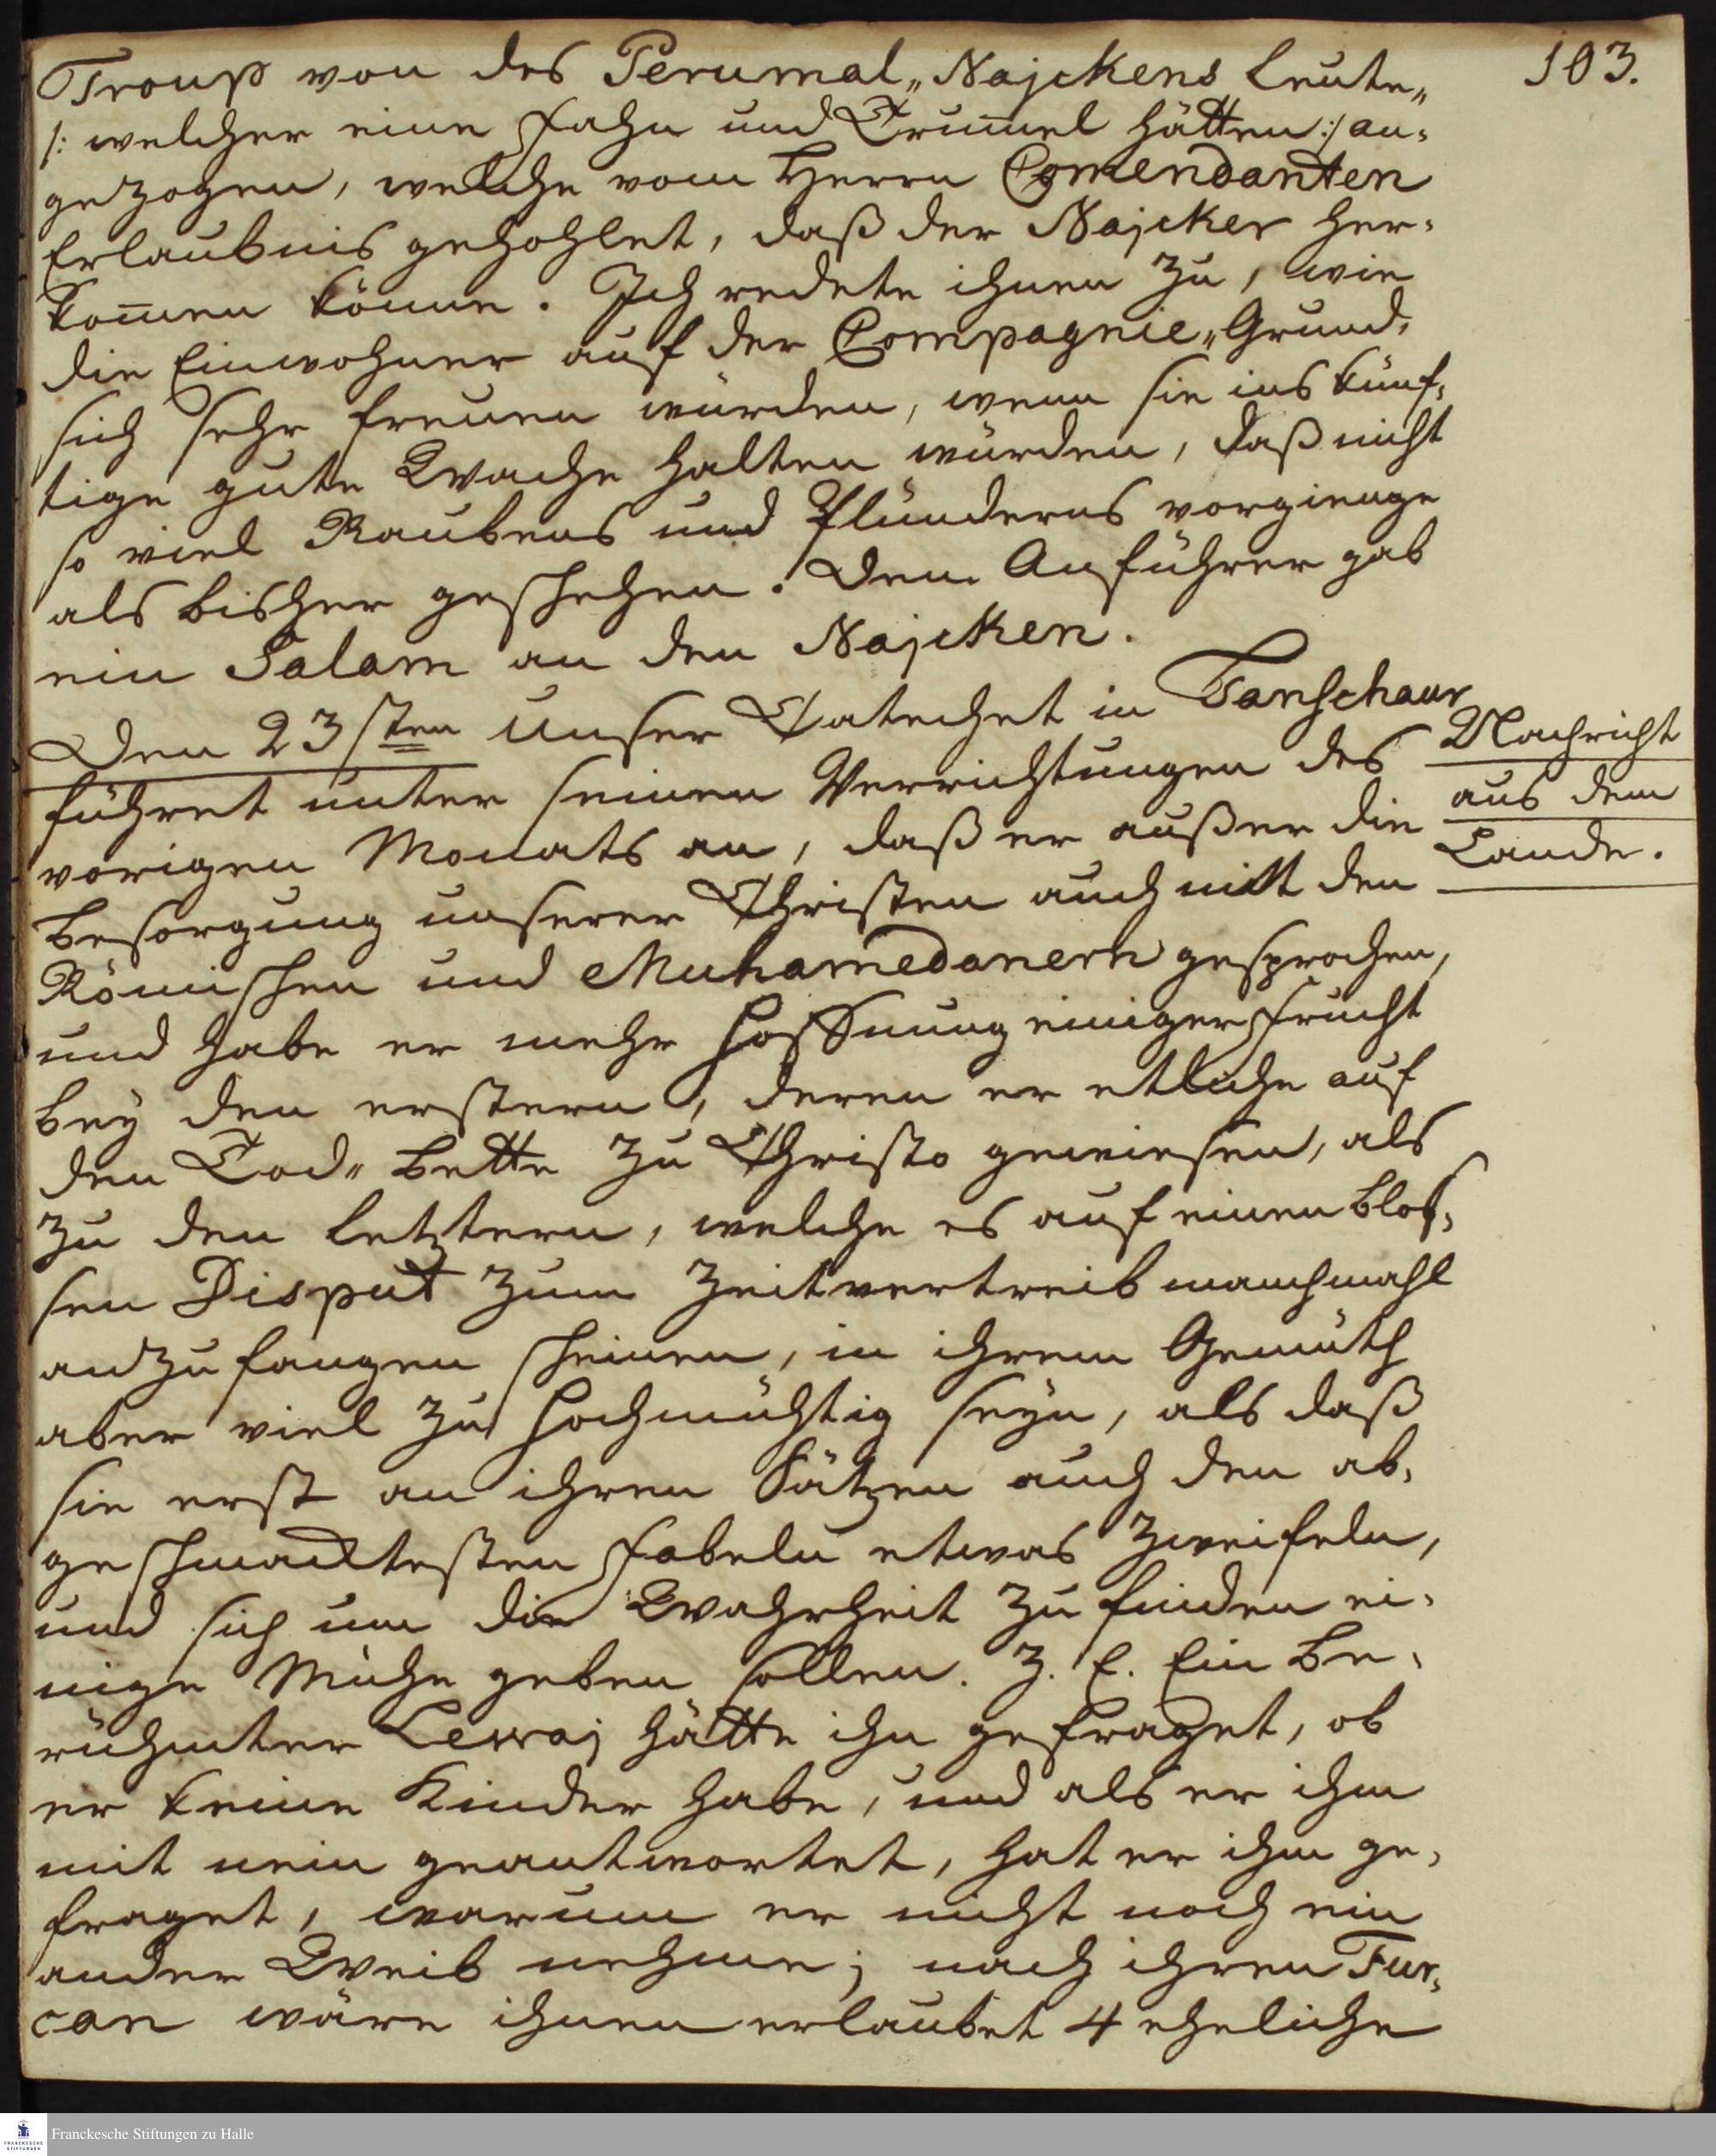 103.
Troup von des Perumal„Najckens Leute„
/: welcher eine Fahn und Trum̅el hätten :/ an-
gezogen, welche vom Herrn Comendanten
Erlaubnis gehohlet, daß der Najcker her-
kom̅en könne. Ich redete ihnen zu, wie
die Einwohner auf der Compagnie„Grund,
sich sehr freuen würden, wenn sie ins künf-
tige gute Wache halten würden, daß nicht
so viel Raubens und Plünderns vorgienge
als bisher geschehen. Dem Anführer gab
ein Salam an den Najcken.
Den 23sten Unser Catechet in Tanschaur
führet unter seinen Verrichtungen des
vorigen Monats an, daß er außer die
Besorgung unserer Christen auch mitt den
Römischen und Muhamedanern gesprochen,
und habe er mehr Hoffnung einiger Frucht
bey den erstern, deren er etliche auf
den Tod„Bette zu Christo gewiesen, als
zu den letztern, welche es auf einen blos-
sen Disput zum Zeitvertreib manchmahl
anzufangen scheinen, in ihrem Gemüth
aber viel zu hochmühtig seyn, als daß
sie erst an ihren Sätzen auch den ab-
geschmacktesten Fabeln etwas zweifeln,
und sich um die Wahrheit zu finden ei-
nige Mühe geben sollen. Z. E. Ein be-
rühmter Lewaj hätte ihn gefraget, ob
er keine Kinder habe, und als er ihm
mit nein geantwortet, hat er ihm ge-
fraget, warum er nicht noch ein
ander Weib nehme; nach ihren Fur-
can wäre ihnen erlaubet 4 eheliche
Nachricht
aus dem
Lande.
Franckesche Stiftungen zu Halle